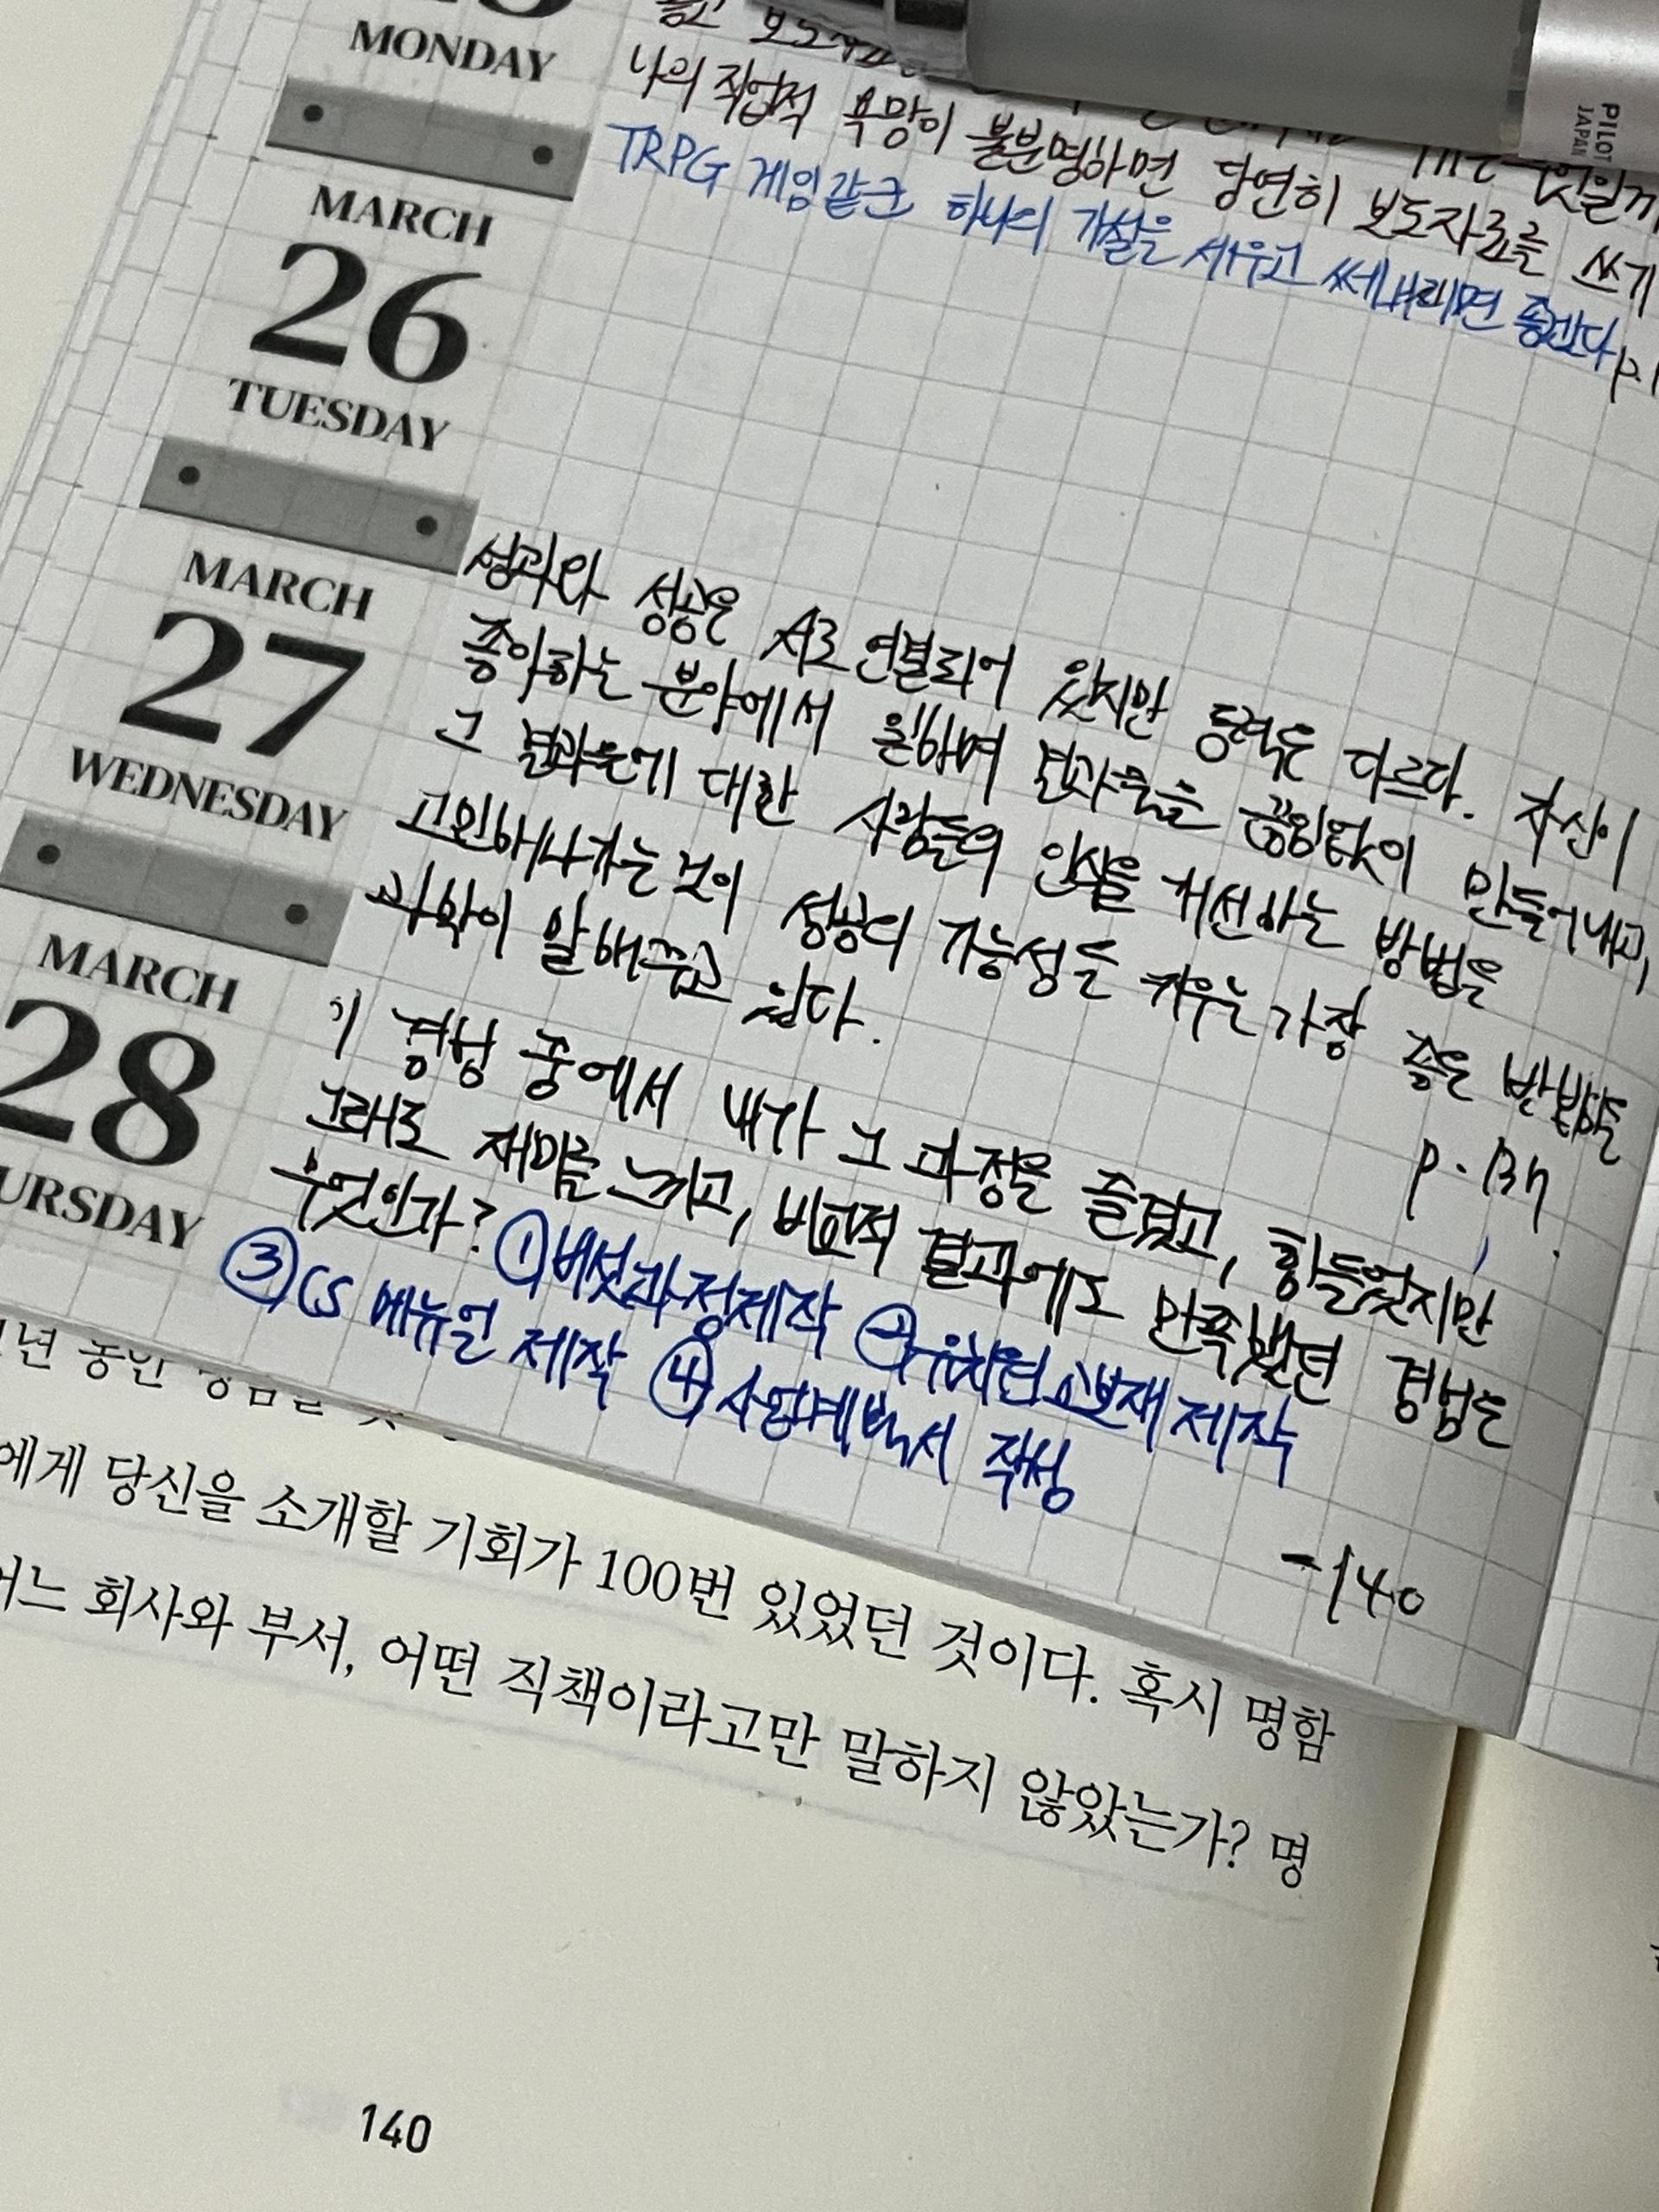 MONDAY
나의 직업적 욕망이 불분명하면 당연히 보도자료를 쓰기
TRPG 게임같군 하나의 가설을 세우고 써내리면 좋겠다
PILOT
JAPAN
MARCH
26
TUESDAY
MARCH
27
WEDNESDAY
성과와 성공은 서로 연결되어 있지만 동력은 다르다. 자신이
좋아하는 분야에서 일하며 결과물을 끊임없이 만들어내고,
그 결과물에 대한 사람들의 인식을 개선하는 방법을
고민해나가는 것이 성공의 가능성을 키우는 가장 좋은 방법임을
과학이 말해주고 있다.
p. 137.
MARCH
28
URSDAY
이 경험 중에서 내가 그 과정을 즐겼고, 힘들었지만
그래도 재미를 느끼고, 비교적 결과에도 만족했던 경험은
무엇인가? ①버섯과정제작 ②유치원교보재 제작
③CS 메뉴얼 제작 ④사업계획서 작성
-140
년 동안
에게 당신을 소개할 기회가 100번 있었던 것이다. 혹시 명함
어느 회사와 부서, 어떤 직책이라고만 말하지 않았는가? 명
140